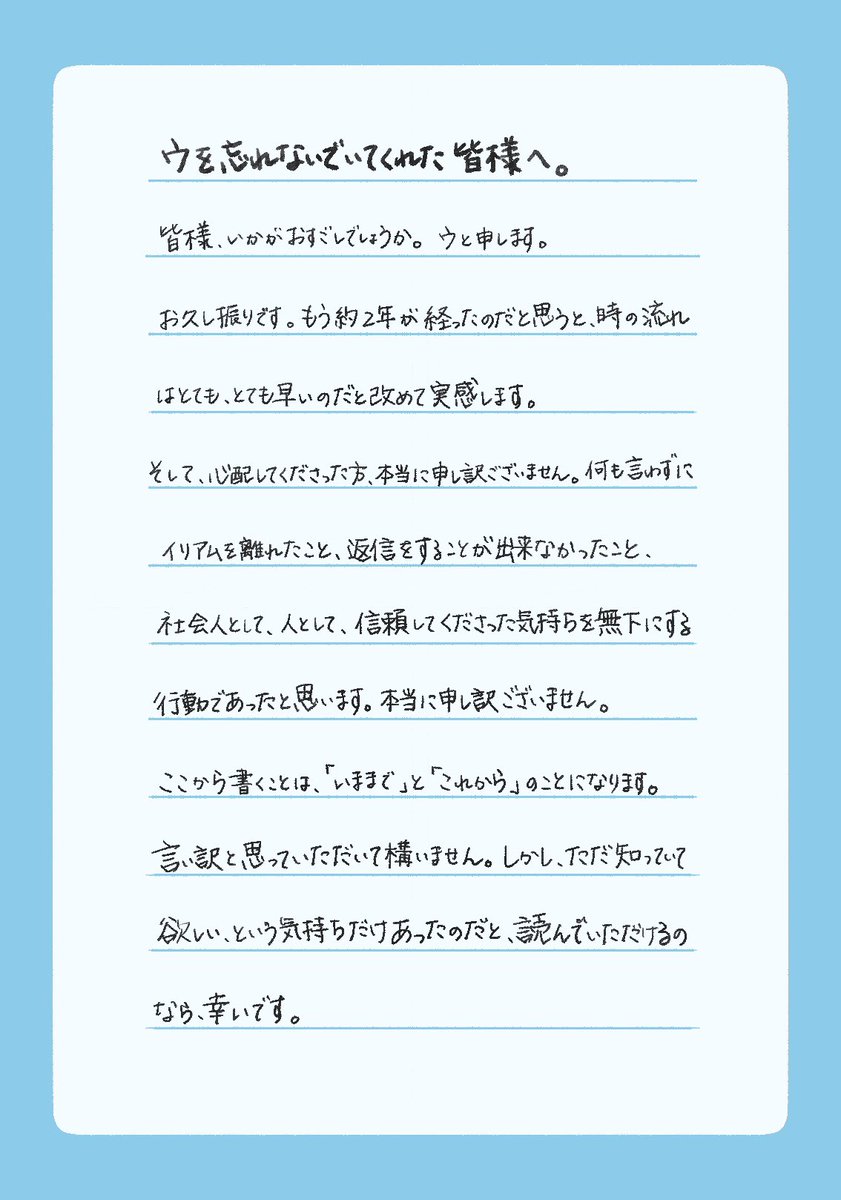 ウを忘れないでいてくれた皆様へ。
皆様、いかがおすごしでしょうか。ウと申します。
お久し振りです。もう約2年が経ったのだと思うと、時の流れ
はとても、とても早いのだと改めて実感します。
そして、心配してくださった方、本当に申し訳ございません。何も言わずに
イリアムを離れたこと、返信をすることが出来なかったこと、
社会人として、人として、信頼してくださった気持ちを無下にする
行動であったと思います。本当に申し訳ございません。
ここから書くことは、「いままで」と「これから」のことになります。
言い訳と思っていただいて構いません。しかし、ただ知っていて
欲しい、という気持ちだけあったのだと、読んでいただけるの
なら、幸いです。